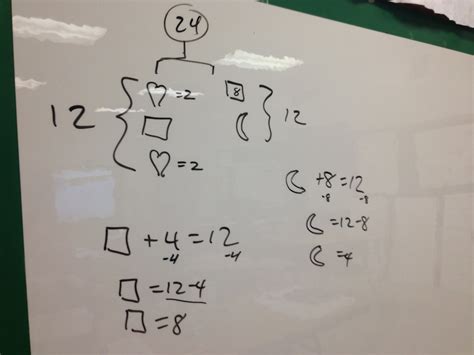 24
12 { ♡=2 □8 } 12
□ ☾
♡=2
☾ +8=12
-8 -8
☾ =12-8
☾ =4
□ +4=12
-4 -4
□ =12-4
□ =8